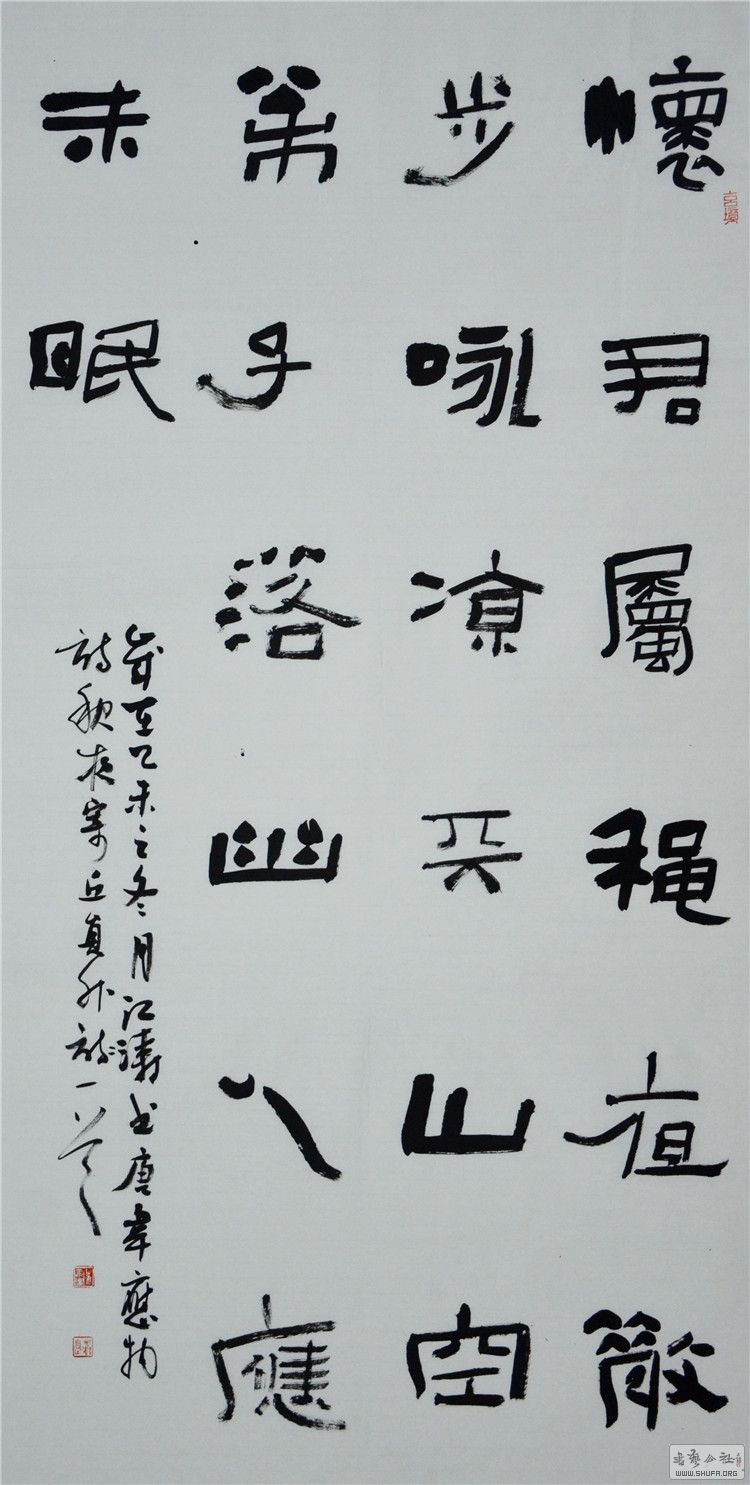 懷君屬穐夜散
步咏凉天山空
松子落幽人應
未眠
歲在乙未之冬月江濤書唐韋應物
詩秋夜寄丘員外詩一首
书艺公社
WWW.SHUFA.ORG